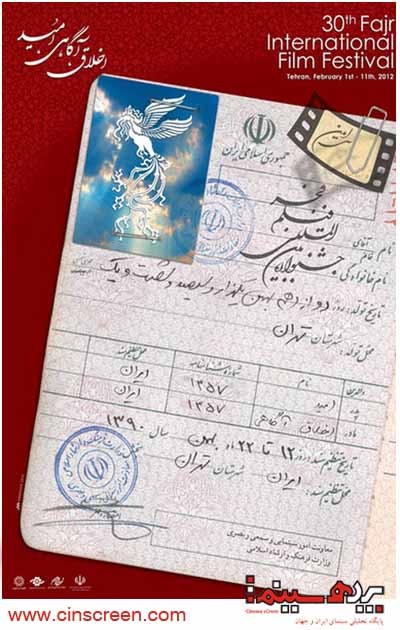 30th Fajr
International
Film Festival
Tehran, February 1st - 11th, 2012
اخلاق، آگاهی، امید
جمهوری اسلامی ایران
سی امین
آقای
نام خانم
نام خانوادگی:
جشنواره بین المللی فیلم فجر
تاریخ تولد: روز دوازدهم بهمن یکهزار و سیصد و شصت و یک
محل تولد: شهرستان تهران
والدین نام شماره شناسنامه محل تنظیم سند
پدر امید ۱۳۵۷ ایران
مادر اخلاق، آگاهی ۱۳۵۷ ایران
تاریخ تنظیم سند: روز ۱۲ تا ۲۲ ماه بهمن سال ۱۳۹۰
محل تنظیم سند: ایران شهرستان تهران
معاونت امور سینمایی و سمعی و بصری
وزارت فرهنگ و ارشاد اسلامی
www.cinscreen.com
پرده سینما
Cinema sCreen
پایگاه تحلیلی سینمای ایران و جهان